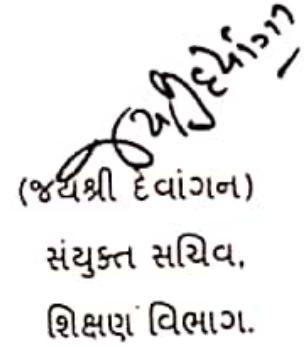 (જયશ્રી દેવાંગન)
સંયુક્ત સચિવ,
શિક્ષણ વિભાગ.